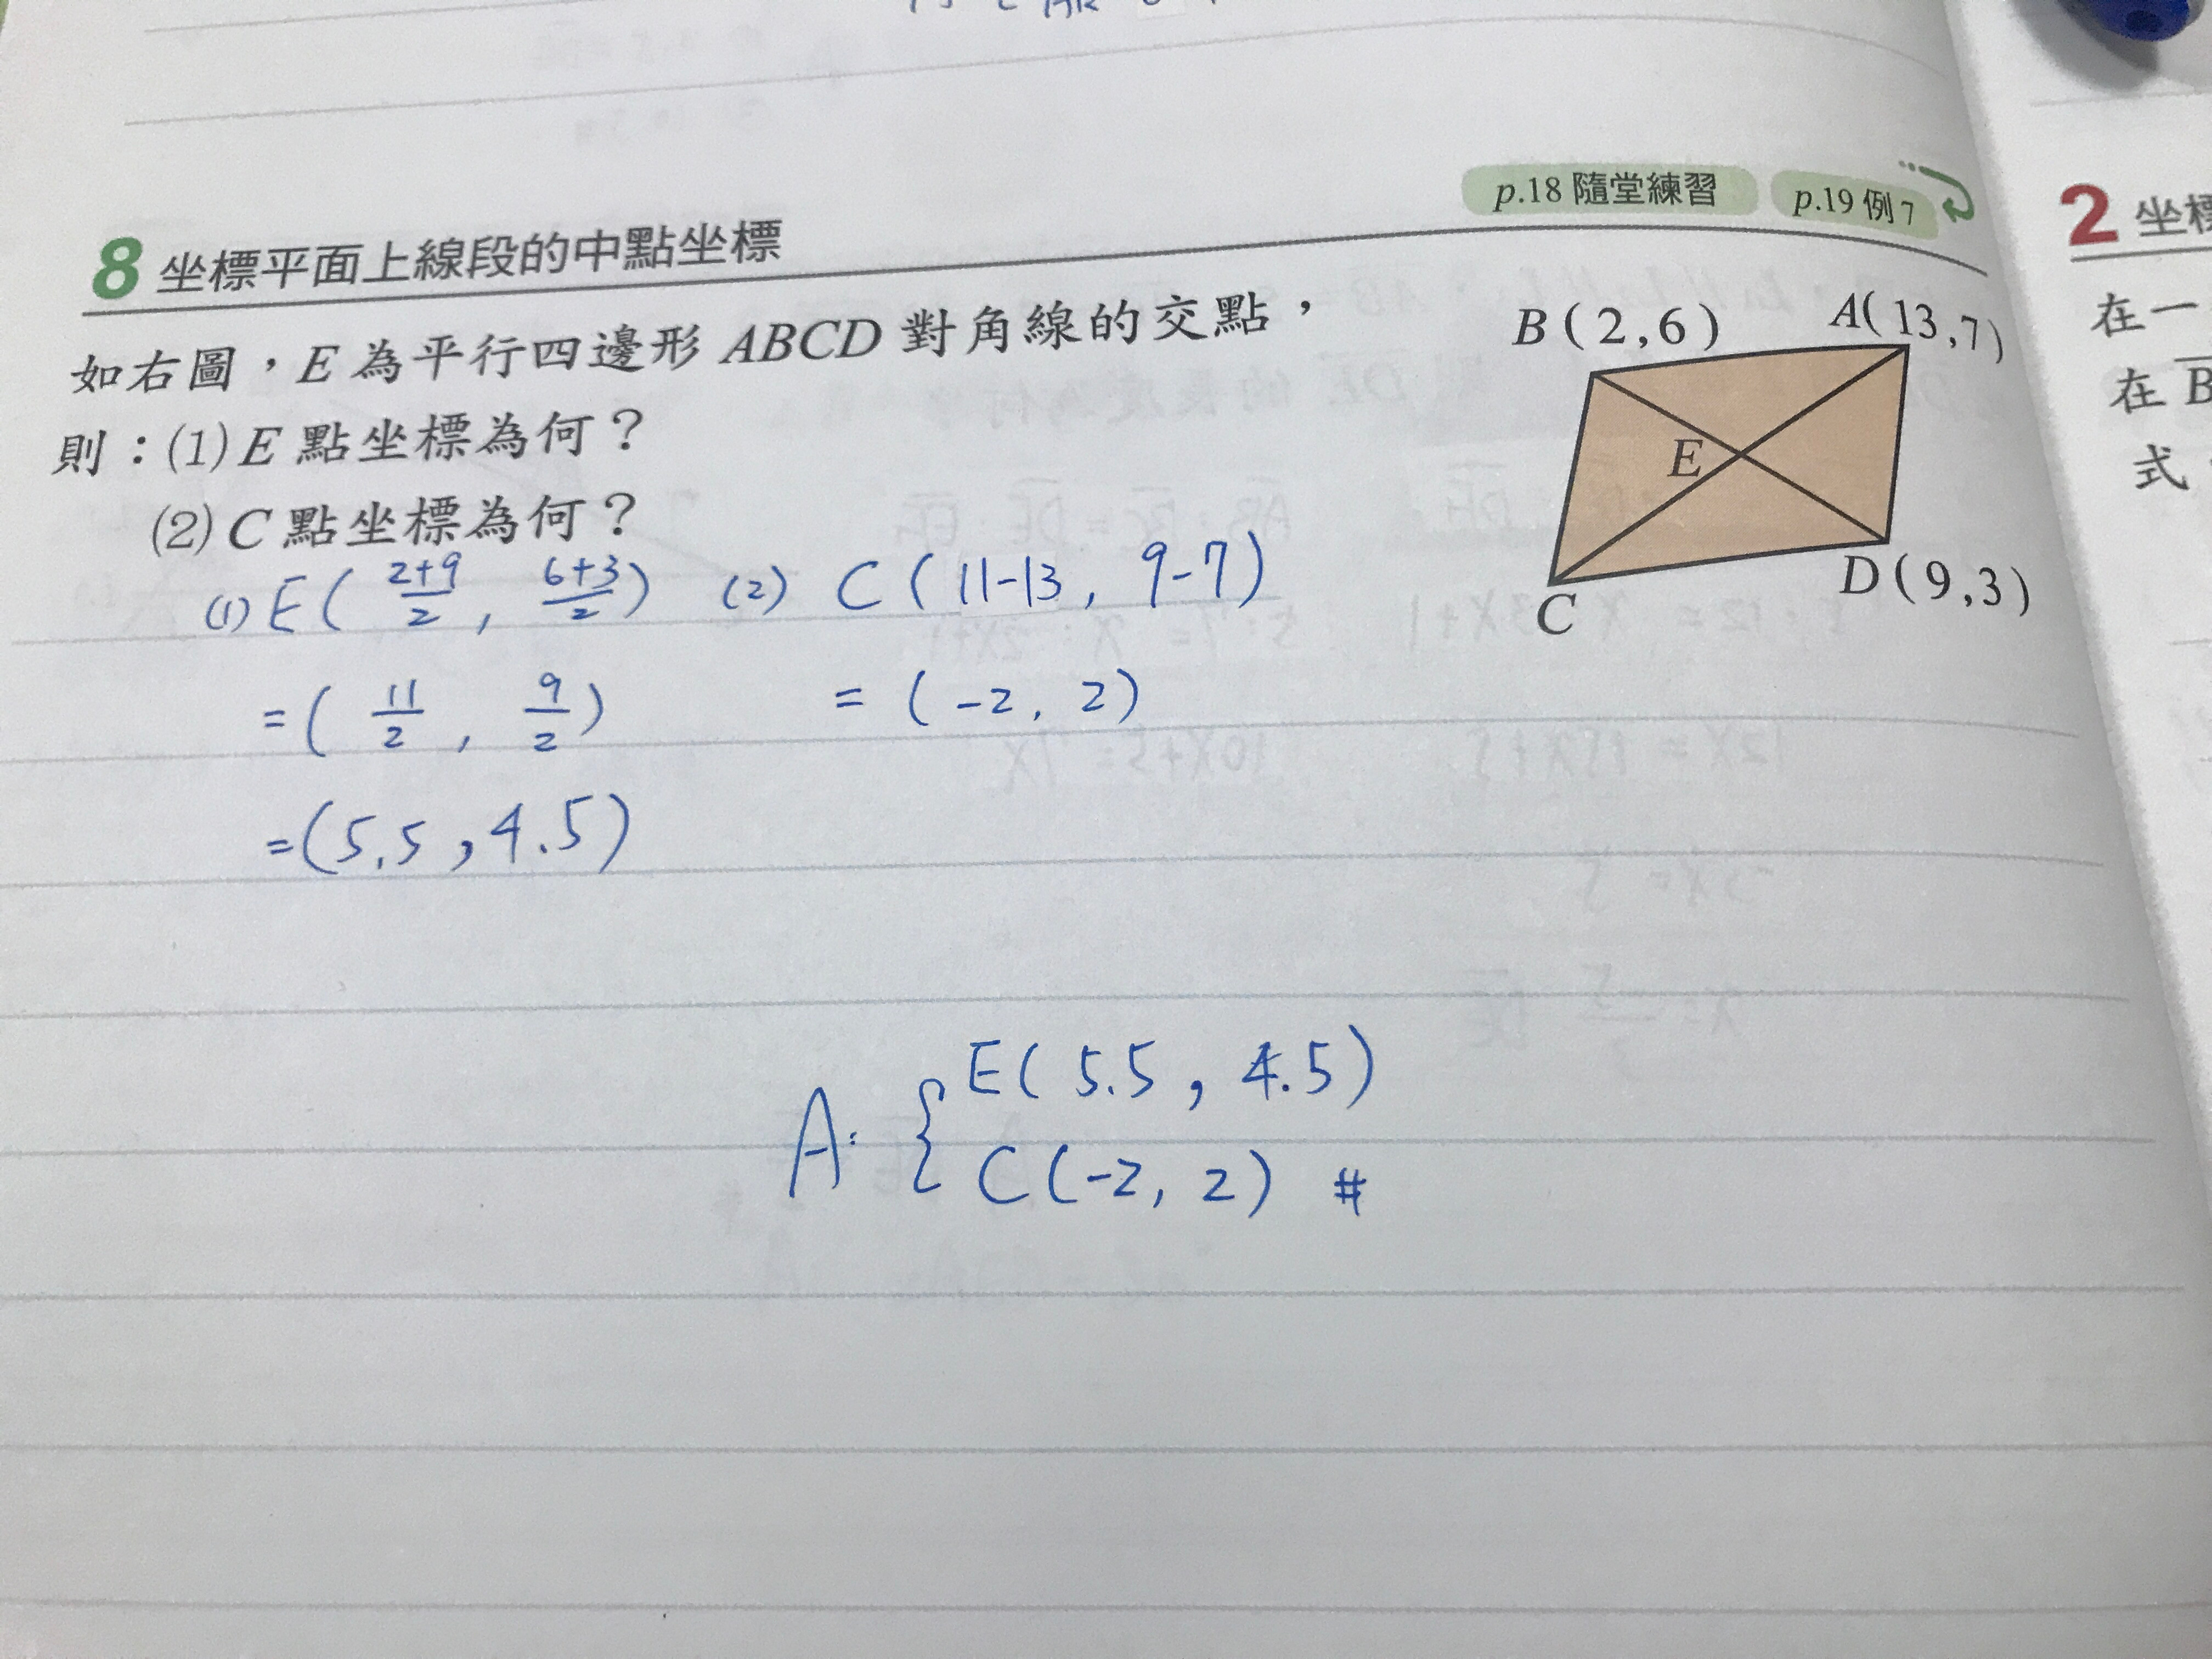 p.18 隨堂練習 p.19 例7
8 坐標平面上線段的中點坐標
如右圖，E 為平行四邊形 ABCD 對角線的交點，
則：(1) E 點坐標為何？
(2) C 點坐標為何？
B(2,6) A(13,7)
E
C D(9,3)
(1) E( 2+9/2 , 6+3/2 ) (2) C ( 11-13 , 9-7 )
=( 11/2 , 9/2 ) = ( -2 , 2 )
=(5.5 , 4.5)
A: { E( 5.5 , 4.5 )
C ( -2 , 2 ) #
2 坐
在一
在 B
式